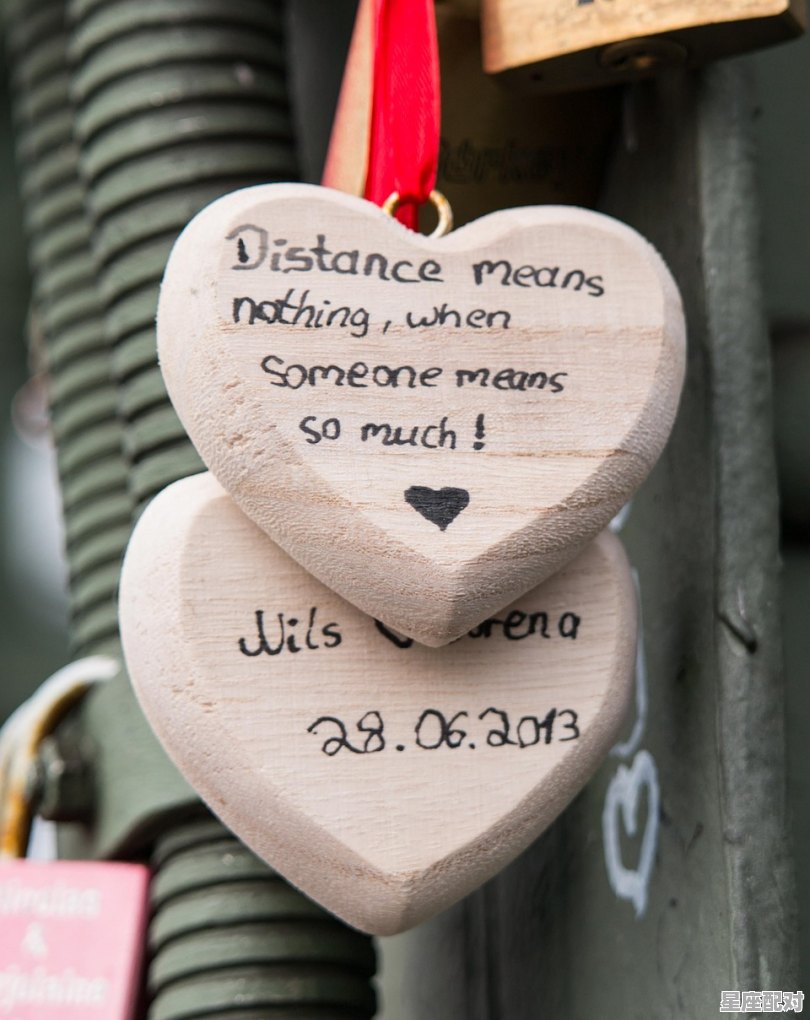 Distance means
nothing, when
someone means
so much!
Nils
28.06.2013
&
星座配对